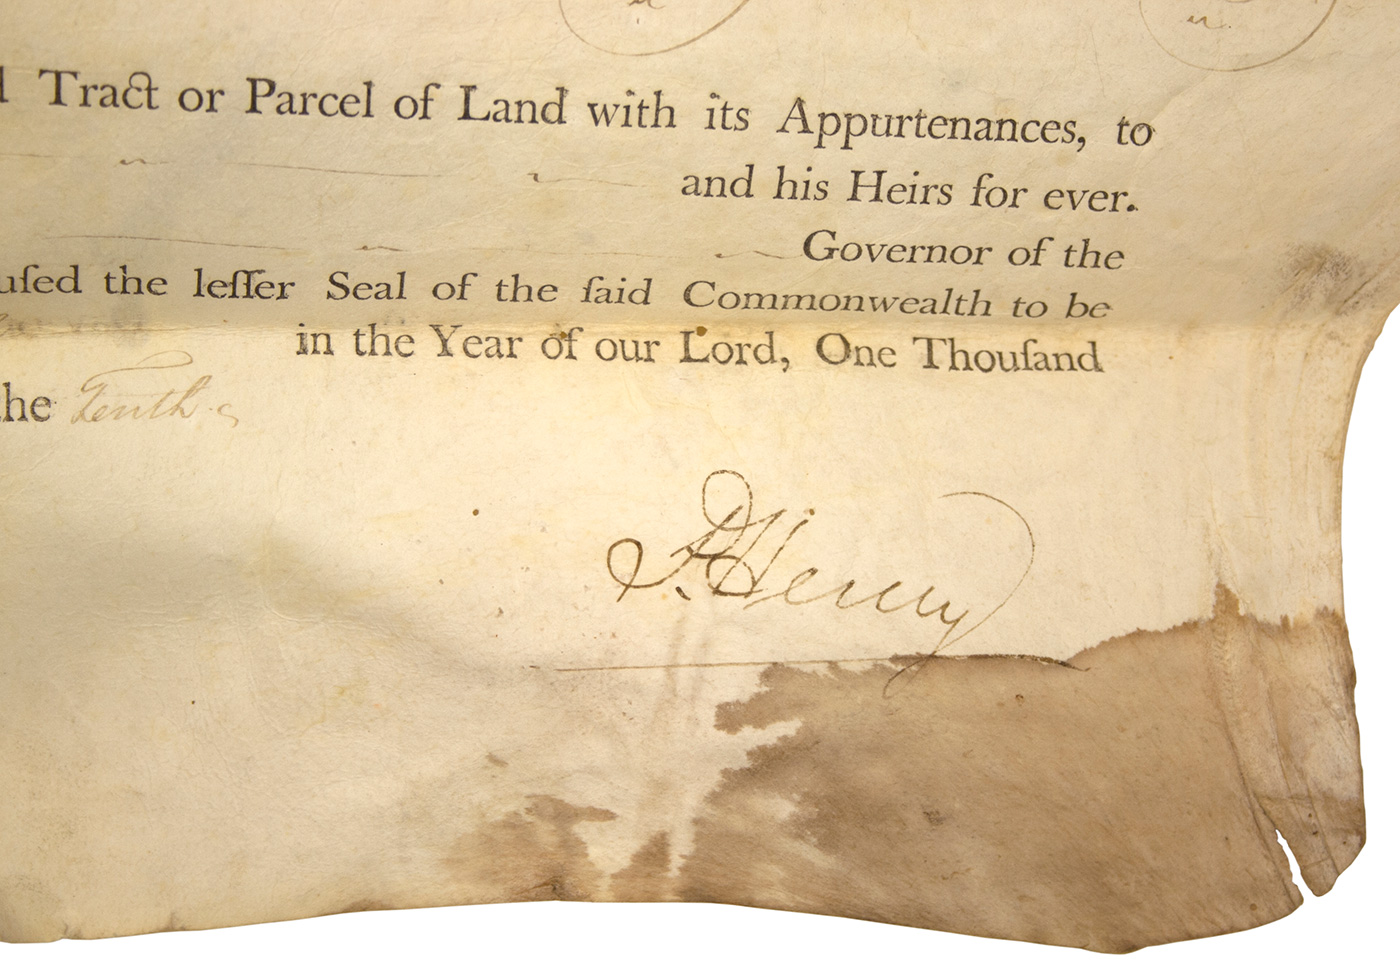 Tract or Parcel of Land with its Appurtenances, to
and his Heirs for ever.
Governor of the
uſed the leſſer Seal of the ſaid Commonwealth to be
in the Year of our Lord, One Thouſand
the Tenth
P. Henry